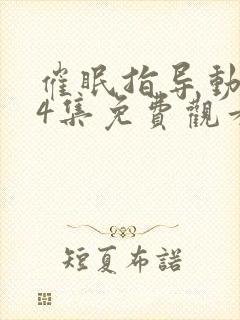 催眠指导動
4集免費觀看
短夏布諾